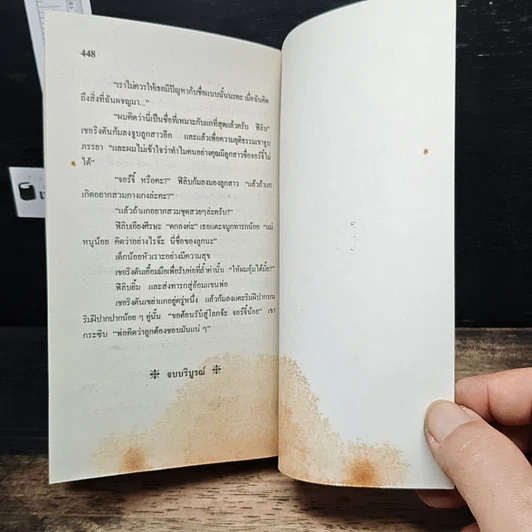 448
"เราไม่ควรให้เธอมีปัญหากับชื่อแบบนั้นนะคะ เมื่อฉันคิด
ถึงสิ่งที่ฉันผจญมา..."
"ผมคิดว่านี่เป็นชื่อที่เหมาะกับแกที่สุดแล้วครับ ฟีลิบ"
เชอริงตันก้มลงจูบลูกสาวอีก และแล้วเพื่อความยุติธรรมเขาจูบ
ภรรยา "และผมไม่เข้าใจว่าทำไมคนอย่างคุณมีลูกสาวชื่อจอร์จี้ไม่
ได้"
"จอร์จี้ หรือคะ?" ฟีลิบก้มลงมองลูกสาว "แล้วถ้าแก
เกิดอยากสวมกางเกงล่ะคะ?"
"แล้วถ้าแกอยากสวมชุดสวยๆล่ะครับ?"
ฟีลิบเอียงศีรษะ "ตกลงค่ะ" เธอแตะจมูกทารกน้อย "แม่
หนูน้อย คิดว่าอย่างไรจ๊ะ นี่ชื่อของลูกนะ"
เด็กน้อยหัวเราะอย่างมีความสุข
เชอริงตันเอื้อมมือเพื่อรับห่อที่ล้ำค่านั้น "ให้ผมอุ้มได้มั้ย?"
ฟีลิบยิ้ม และส่งทารกสู่อ้อมแขนพ่อ
เชอริงตันเขย่าแกอยู่ครู่หนึ่ง แล้วก้มลงแตะริมฝีปากบน
ริมฝีปากปากน้อย ๆ คู่นั้น "ขอต้อนรับสู่โลกจ้ะ จอร์จี้น้อย" เขา
กระซิบ "พ่อคิดว่าลูกต้องชอบมันแน่ ๆ"
❉ จบบริบูรณ์ ❉